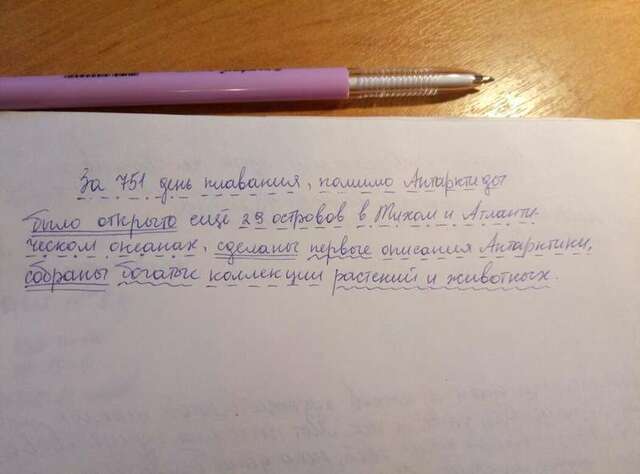 За 751 день плавания, помимо Антарктиды
было открыто ещё 29 островов в Тихом и Атланти-
ческом океанах, сделаны первые описания Антарктики,
собраны богатые коллекции растений и животных.